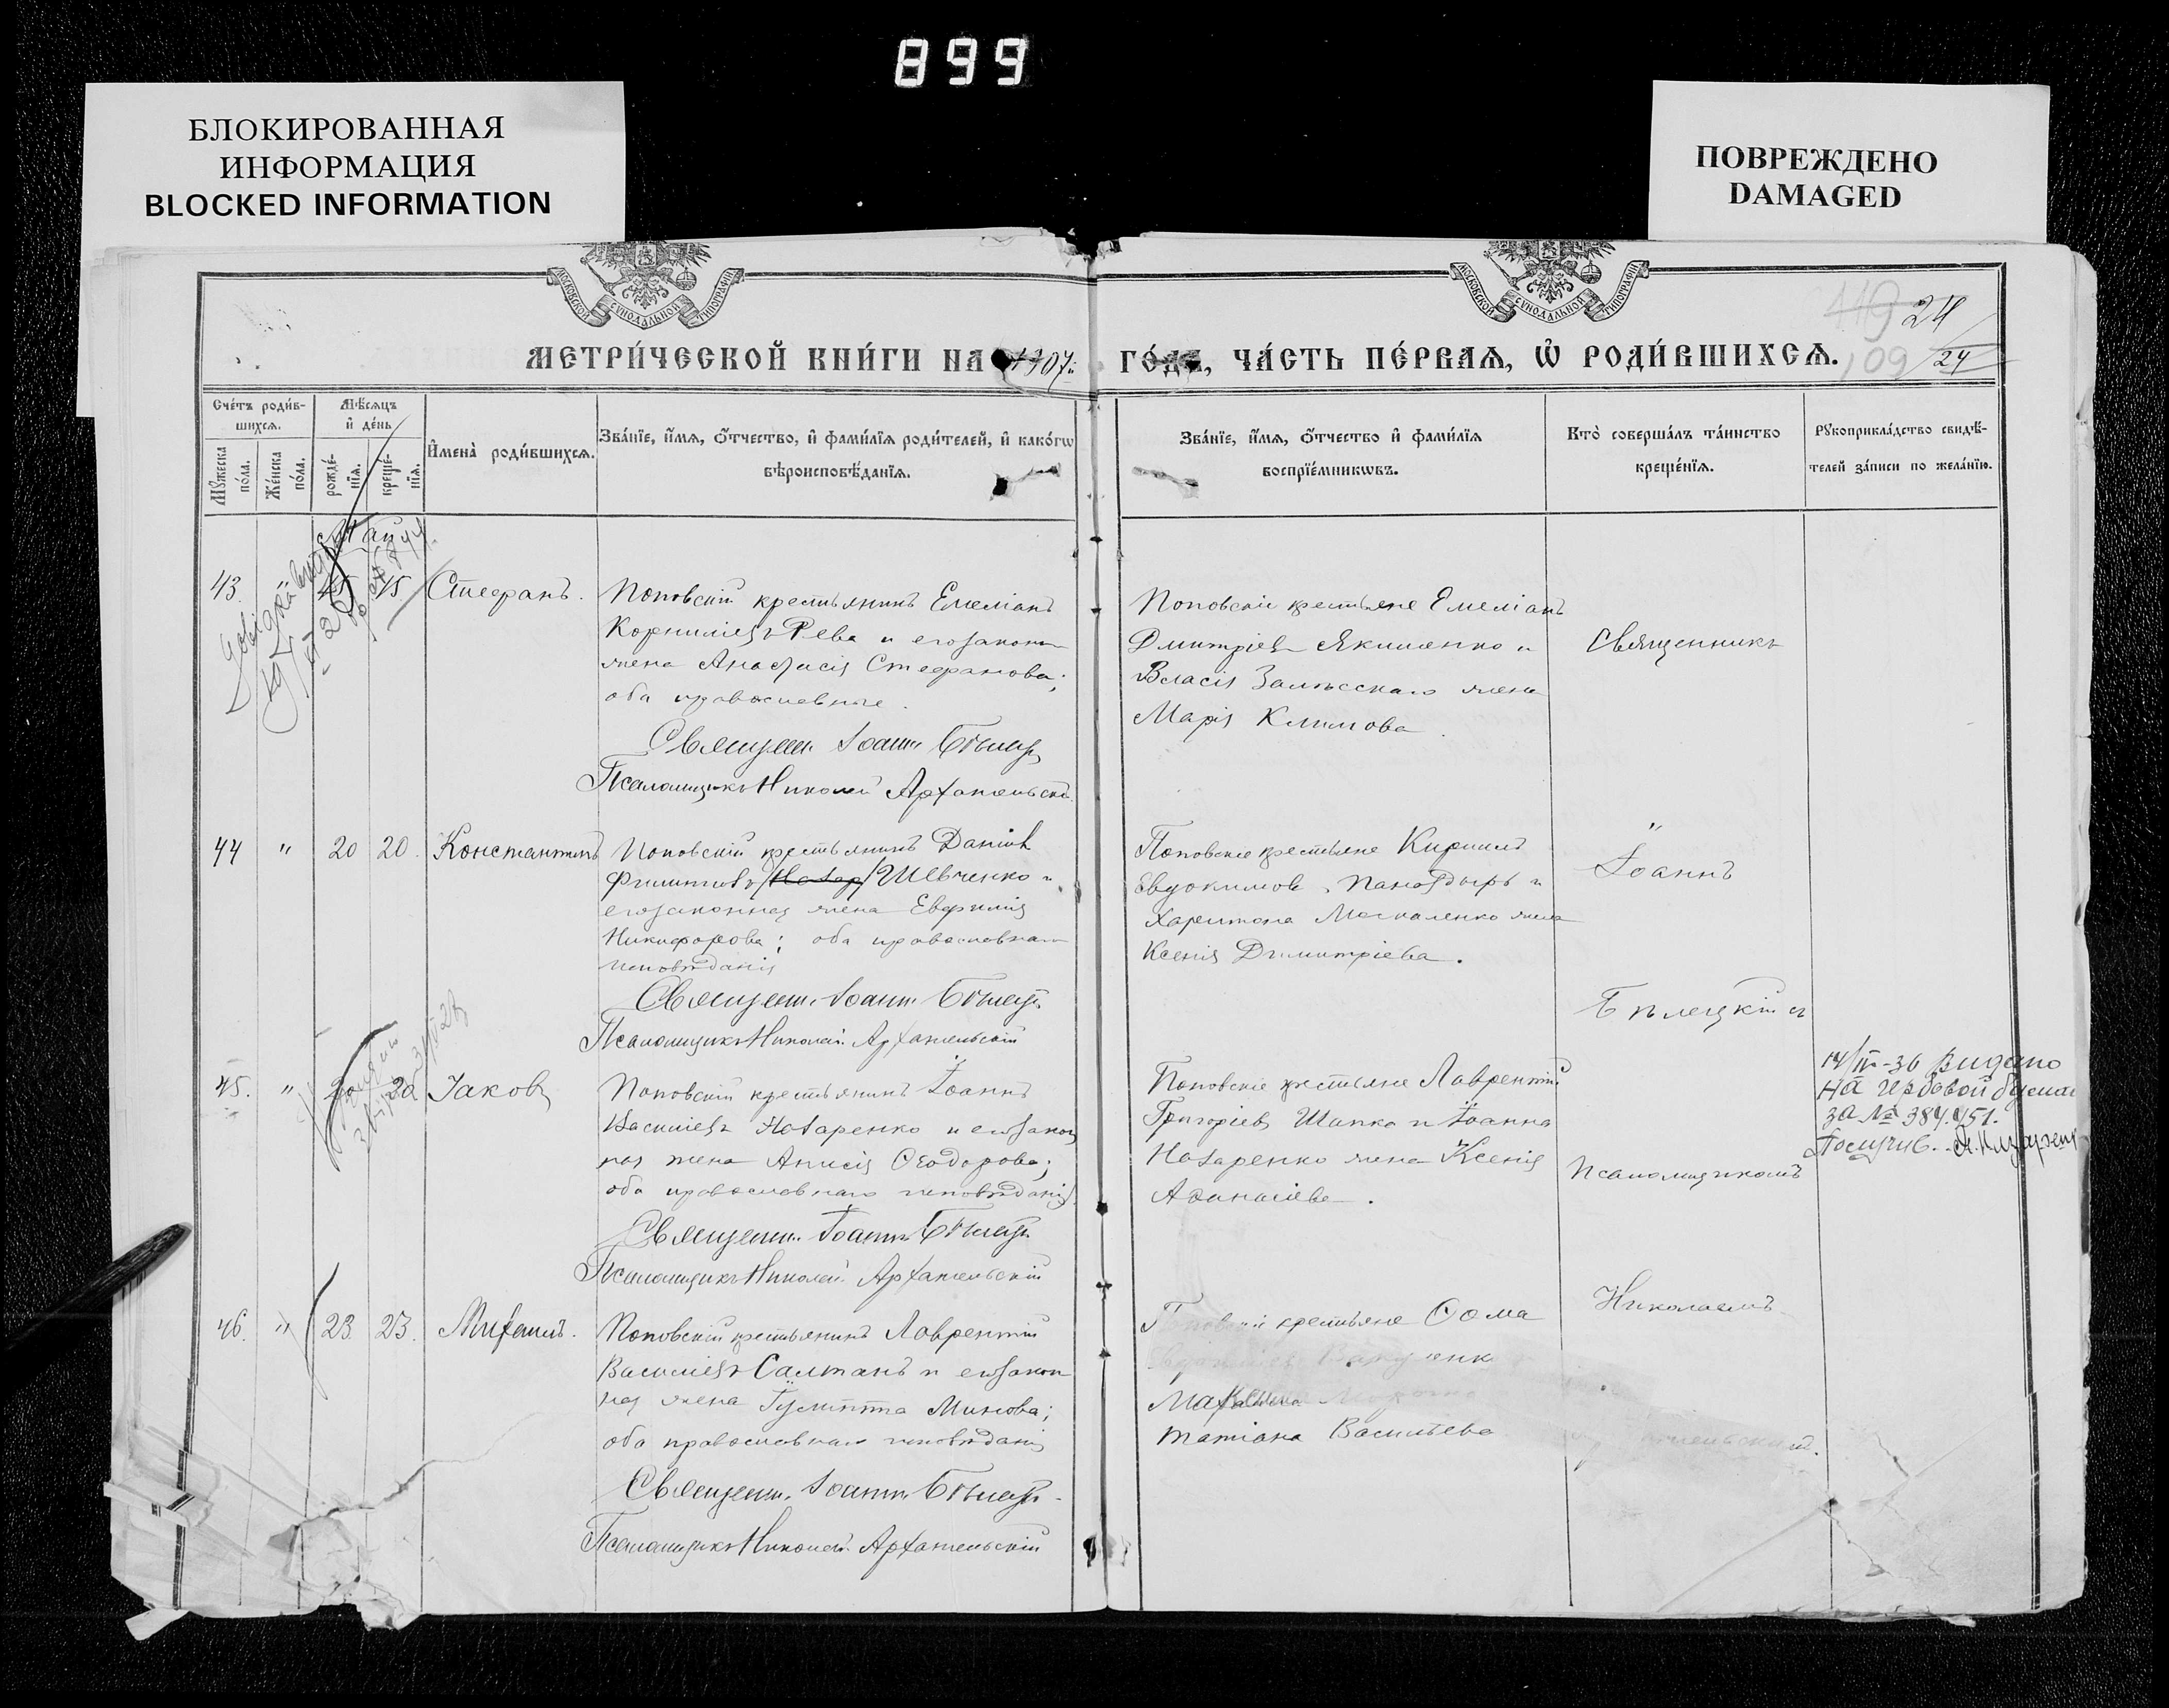 899
БЛОКИРОВАННАЯ
ИНФОРМАЦИЯ
BLOCKED INFORMATION
ПОВРЕЖДЕНО
DAMAGED
МОСКОВСКОЙ СѴНОДАЛЬНОЙ ТИПОГРАФІИ
МОСКОВСКОЙ СѴНОДАЛЬНОЙ ТИПОГРАФІИ
119 24
109 24
МЕТРИ́ЧЕСКОЙ КНИ́ГИ НА 1907й ГО́ДЪ, ЧА́СТЬ ПЕ́РВАЯ, Ѡ҆ РОДИ́ВШИХСЯ.
Сче́тъ роди́в-
шихся.
Мꙋжеска
по́ла.
Же́нска
по́ла.
Мѣ́сяцъ
и҆ де́нь
рожде́-
нїя.
креще́-
нїя.
И҆мена̀ роди́вшихся.
Зва́нїе, и҆́мя, ѻ҆́тчество, и҆ фами́лїя роди́телей, и҆ како́гѡ
вѣроисповѣ́данїя.
Зва́нїе, и҆́мя, ѻ҆́тчество и҆ фами́лїя
воспрїе́мникѡвъ.
Кто̀ соверша́лъ та́инство
креще́нїя.
Рꙋкоприкла́дство свидѣ́-
телей за́писи по жела́нїю.
43. " 15 15. Стефанъ.
Поповскій крестьянинъ Емеліанъ
Корниліевъ Рева и его законн
жена Анастасія Стефанова;
оба православные.
Священ. Іоаннъ Бѣлец
Псаломщикъ Николай Архангельскій
Поповскіе крестьяне Емеліанъ
Димитріевъ Якименко и
Власія Залѣсскаго жена
Марія Климова
Священникъ
44 " 20 20. Константинъ
Поповскій крестьянинъ Даніил
Филиповъ /Назар/ Шевченко и
его законная жена Евфимія
Никифорова; оба православнаго
исповѣданія
Священ. Іоаннъ Бѣлец
Псаломщикъ Николай Архангельскій
Поповскіе крестьяне Кириллъ
Евдокимовъ и
Харитона Москаленко жена
Ксенія Димитріева.
"
Іоаннъ
Бѣлецкій съ
45. " 20 20 Іаковъ
Поповскій крестьянинъ Іоаннъ
Василіевъ Назаренко и его закон
ная жена Анисія Ѳеодорова;
оба православнаго исповѣданія
Священ. Іоаннъ Бѣлец
Псаломщикъ Николай Архангельскій
Поповскіе крестьяне Лаврентій
Григоріевъ Шапка и Іоанна
Назаренко жена Ксенія
Аѳанасіева.
Псаломщикомъ
14/IV-36 Видано
на гербовой бумаг
за № 384451.
Получив.
46. " 23 23. Михаилъ.
Поповскій крестьянинъ Лаврентій
Василіевъ Салтанъ и его закон
ная жена Іулитта Минова;
оба православнаго исповѣданія
Священ. Іоаннъ Бѣлец
Псаломщикъ Николай Архангельскій
крестьяне Ѳома
Татіана Василіева
Николаемъ